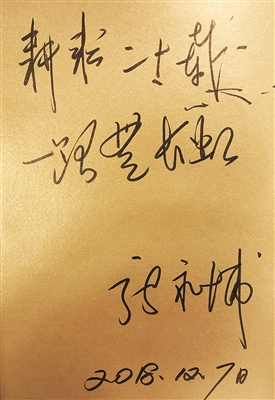 耕耘二十载
一路长虹
张
2018.12.7日